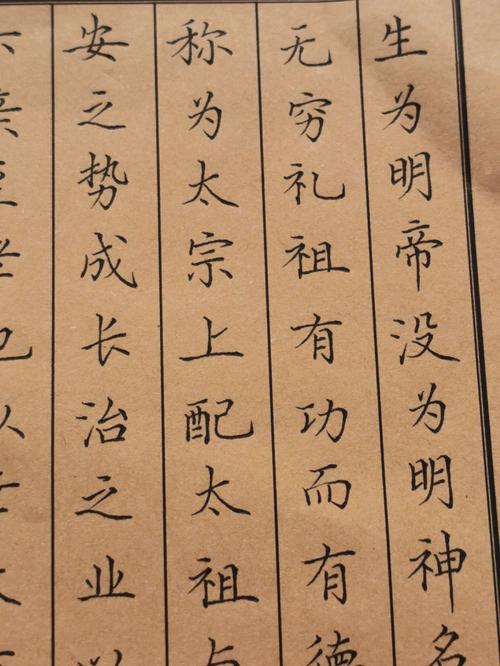 生为明帝没为明神名
无穷礼祖有功而有德
称为太宗上配太祖
安之势成长治之业以